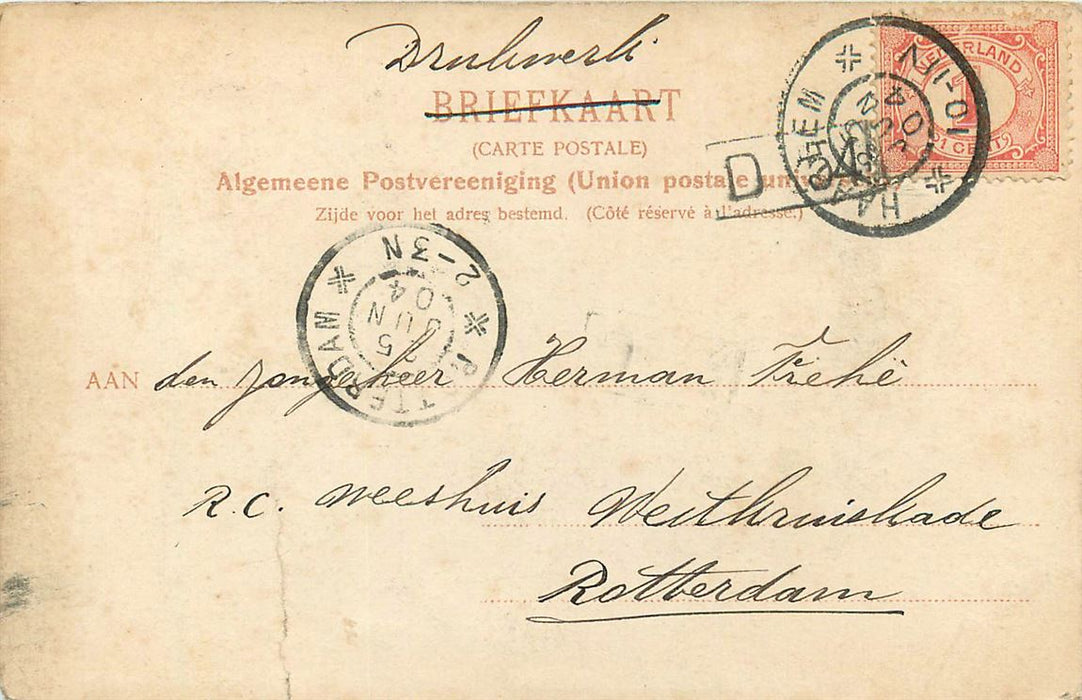 Drukwerk
BRIEFKAART
(CARTE POSTALE)
Algemeene Postvereeniging (Union postale
Zijde voor het adres bestemd. (Côté réservé à l'adresse.)
D
NEDERLAND
1 CENT
HAARLEM
10-11V
04
ROTTERDAM
25 JUN 04
2-3N
AAN den jongeheer Herman Frehé
R.C. weeshuis Westkruiskade
Rotterdam